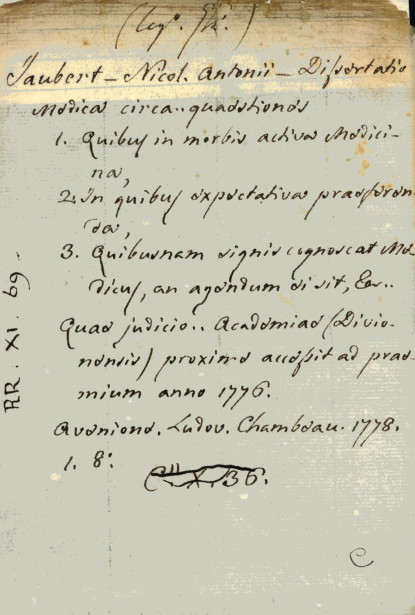 (Leg. Fr.)
Jaubert - Nicol. Antonii - Dissertatio
Medica circa.. quaestiones
1. Quibus in morbis activa Medici-
na,
2. In quibus expectativa praeferen-
da,
3. Quibusnam signis cognoscat Me-
dicus, an agendum ei sit, &c..
Quae judicio.. Academiae (Divio-
nensis) proxime accessit ad prae-
mium anno 1776.
Avenione. Ludov. Chambeau. 1778.
1. 8°.
C. X. 36.
RR. XI. 69.
C